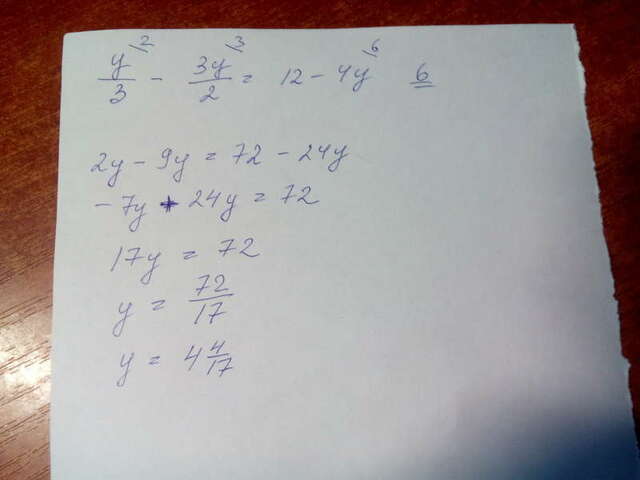 y/3 \2 - 3y/2 \3 = 12 - 4y \6 6
2y - 9y = 72 - 24y
- 7y + 24y = 72
17y = 72
y = 72/17
y = 4 4/17